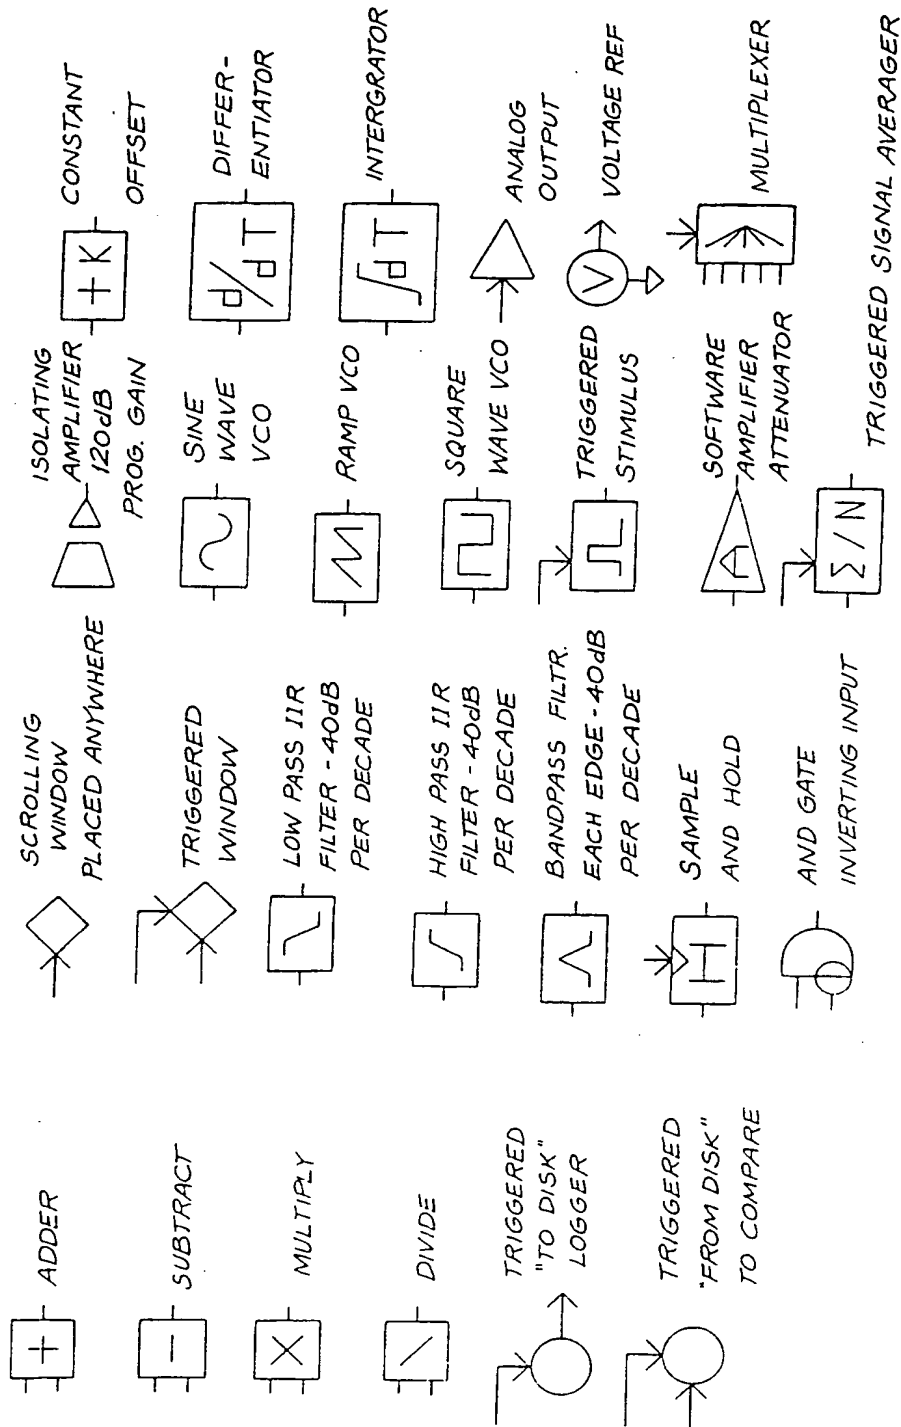 +
ADDER
−
SUBTRACT
×
MULTIPLY
DIVIDE
TRIGGERED
"TO DISK"
LOGGER
TRIGGERED
"FROM DISK"
TO COMPARE
SCROLLING
WINDOW
PLACED ANYWHERE
TRIGGERED
WINDOW
LOW PASS IIR
FILTER - 40dB
PER DECADE
HIGH PASS IIR
FILTER - 40dB
PER DECADE
BANDPASS FILTR.
EACH EDGE - 40dB
PER DECADE
H
SAMPLE
AND HOLD
AND GATE
INVERTING INPUT
ISOLATING
AMPLIFIER
120dB
PROG. GAIN
SINE
WAVE
VCO
RAMP VCO
SQUARE
WAVE VCO
TRIGGERED
STIMULUS
A
SOFTWARE
AMPLIFIER
ATTENUATOR
Σ/N
TRIGGERED SIGNAL AVERAGER
+K
CONSTANT
OFFSET
d/dT
DIFFER-
ENTIATOR
∫dT
INTERGRATOR
ANALOG
OUTPUT
V
VOLTAGE REF
MULTIPLEXER